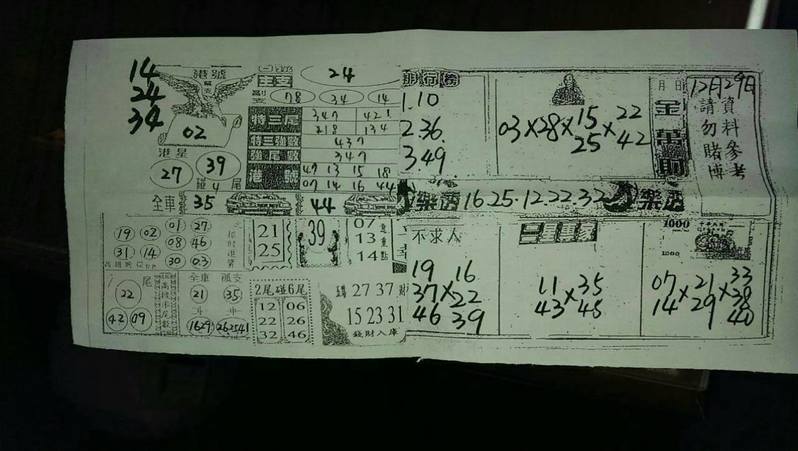 14
24
34
港號
02
港星
27 39
獨4尾
主支 24
副支 78 34 14
特三尾 347 421
218 134
特三強數 437
強尾數 347
港號 49 13 15 18
07 14 16 44
全車 35 44
排行榜
1.10
2 36
3 49
03×28×15×22
25 42
月 日
12月29日
金萬財
請勿賭博
資料參考
樂透 16·25·12·22·32 樂透
01 27
19 02
08 46
31 14
30 03
21
25
39
07
13
14
專重點
尾
22
42 09
全車 孤支
21 35
1629 262541
2尾碰6尾
12 06
22 26
32 46
27 37 財
15 23 31
發財入庫
不求人
19 16
37×22
46 39
11×35
43 45
1000 1000
07×21×33
14 29 38
40